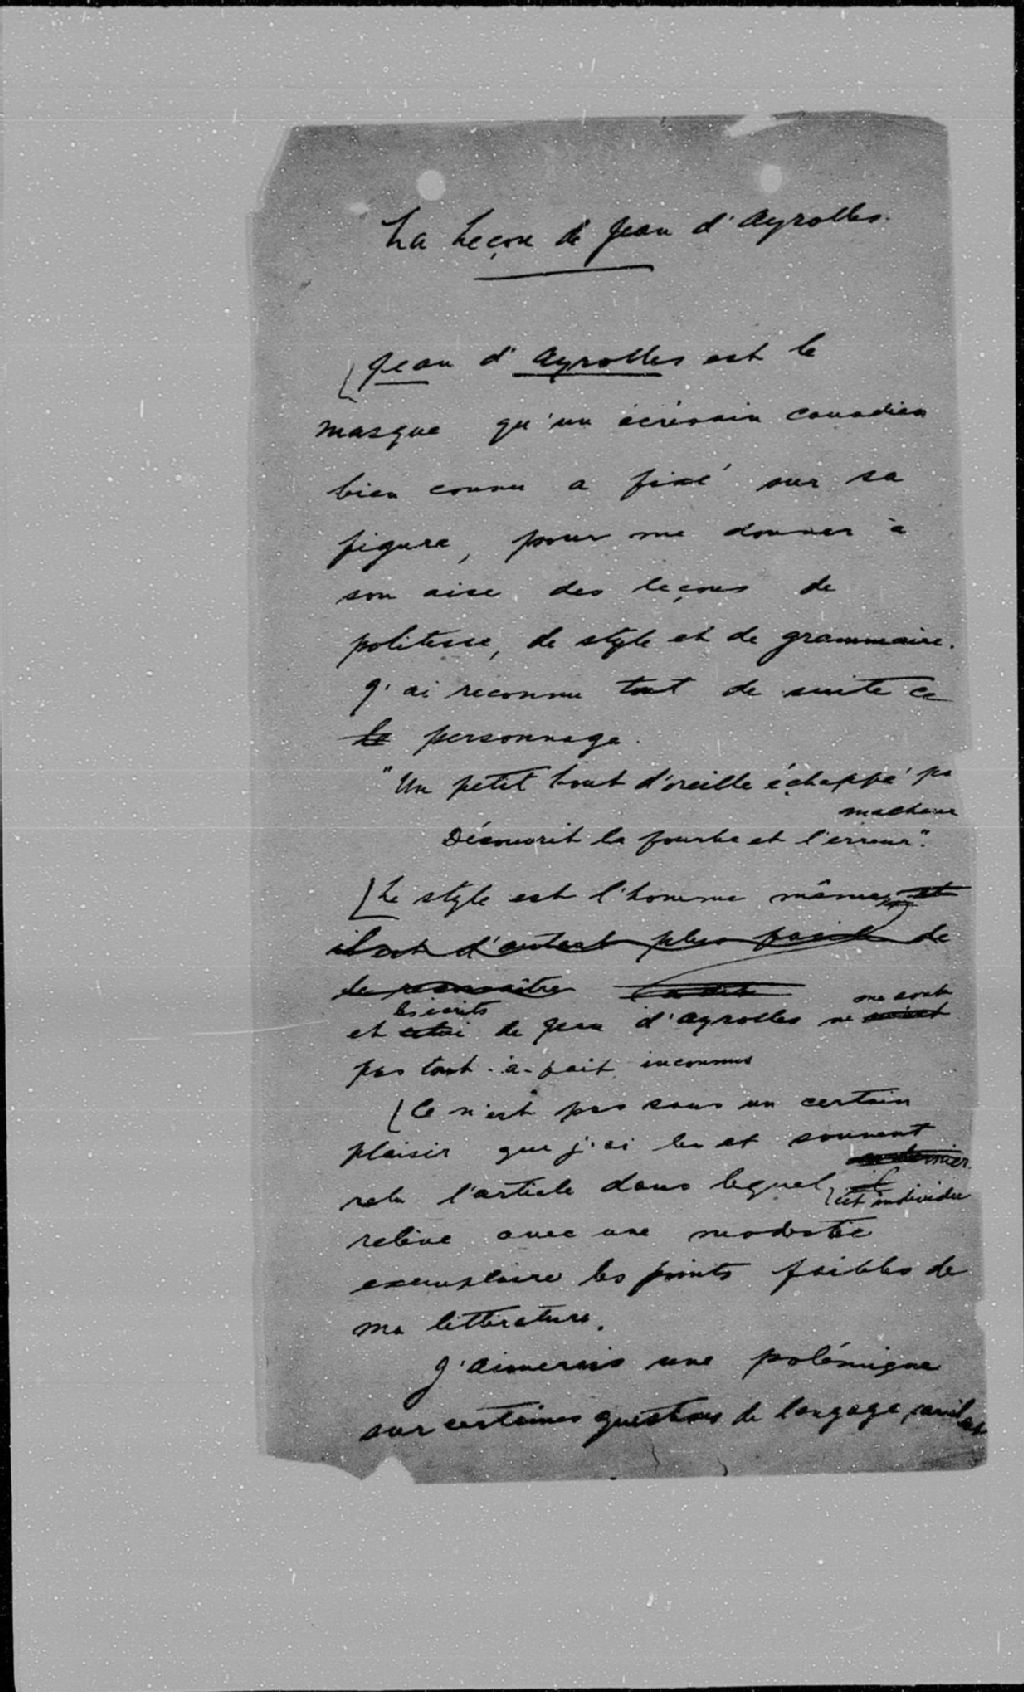 La Leçon de Jean d'Ayrolles.
Jean d'Ayrolles est le
masque qu'un écrivain canadien
bien connu a fixé sur sa
figure, pour me donner à
son aise des leçons de
politesse, de style et de grammaire.
J'ai reconnu tout de suite ce
le personnage.
"Un petit bout d'oreille échappé par
malheur
Découvrit la fourbe et l'erreur".
Le style est l'homme même, et
il est d'autant plus facile de
le reconnaître
les écrits
me sont
et celui de Jean d'Ayrolles ne
pas tout-à-fait inconnus
Ce n'est pas sans un certain
plaisir que j'ai lu et souvent
ce dernier
relu l'article dans lequel il
cet individu
relève avec une modestie
exemplaire les points faibles de
ma littérature.
J'aimerais une polémique
sur certaines questions de langage,